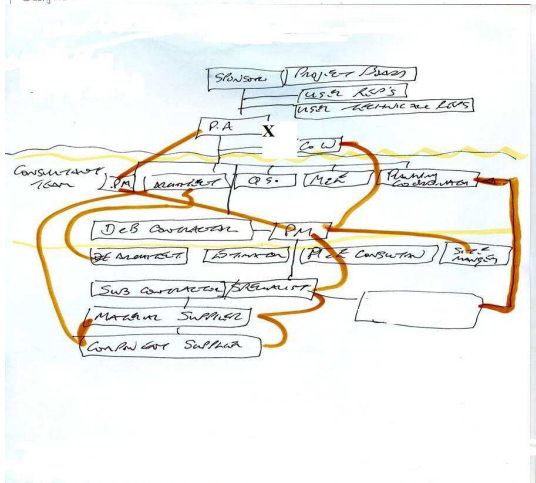 SPONSOR PROJECT BOARD
USER REP'S
USER TECHNICAL REPS
P.A X
CoW
CONSULTANT TEAM
P.M ARCHITECT Q.S. M&E Planning Coordinator
D&B CONTRACTOR P.M.
ARCHITECT ESTIMATOR M&E CONSULTANT SITE MANAGER
SUB CONTRACTOR / SPECIALIST
MATERIAL SUPPLIER
COMPONENT SUPPLIER